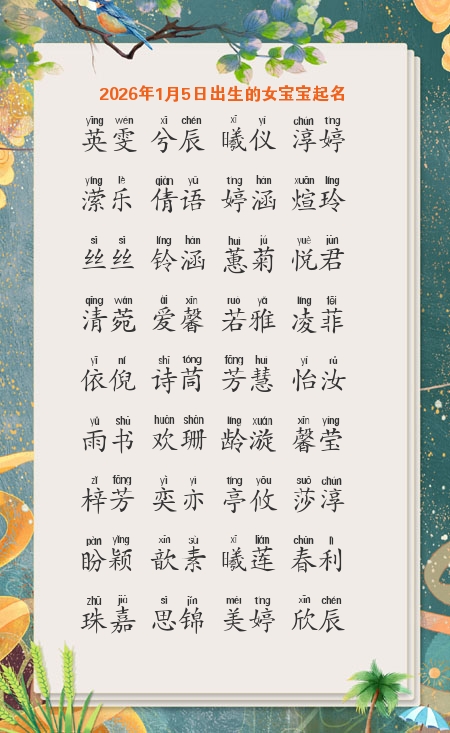 2026年1月5日出生的女宝宝起名
yīng wén xī chén xī yí chún tíng
英雯 兮辰 曦仪 淳婷
yíng lè qiàn yǔ tíng hán xuān líng
潆乐 倩语 婷涵 煊玲
sī sī líng hán huì jú yuè jūn
丝丝 铃涵 蕙菊 悦君
qīng wǎn ài xīn ruò yǎ líng fēi
清菀 爱馨 若雅 凌菲
yī ní shī tóng fāng huì yí rǔ
依倪 诗茼 芳慧 怡汝
yǔ shū huān shān líng xuán xīn yíng
雨书 欢珊 龄漩 馨莹
zǐ fāng yì yì tíng yōu suō chún
梓芳 奕亦 亭攸 莎淳
pàn yǐng xīn sù xī lián chūn lì
盼颖 歆素 曦莲 春利
zhū jiā sī jǐn měi tíng xīn chén
珠嘉 思锦 美婷 欣辰